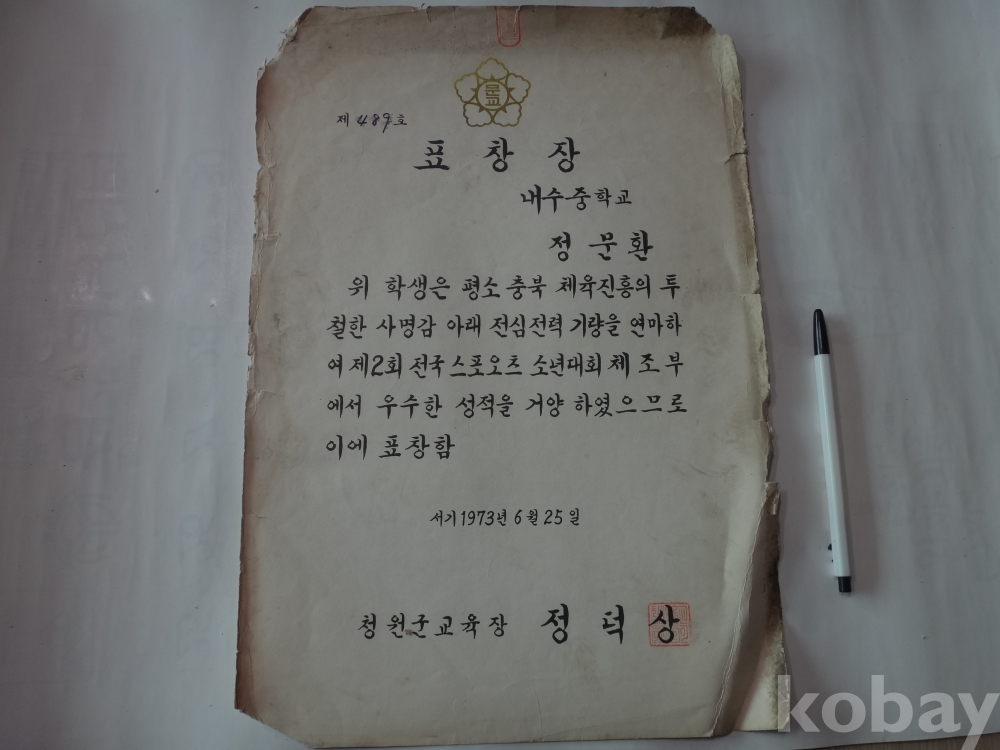 문교
제 489 호
표 창 장
내수중학교
정 문 환
위 학생은 평소 충북 체육진흥의 투
철한 사명감 아래 전심전력 기량을 연마하
여 제2회 전국 스포오츠 소년대회 체조부
에서 우수한 성적을 거양 하였으므로
이에 표창함
서기 1973년 6월 25일
청원군교육장 정덕상
kobay